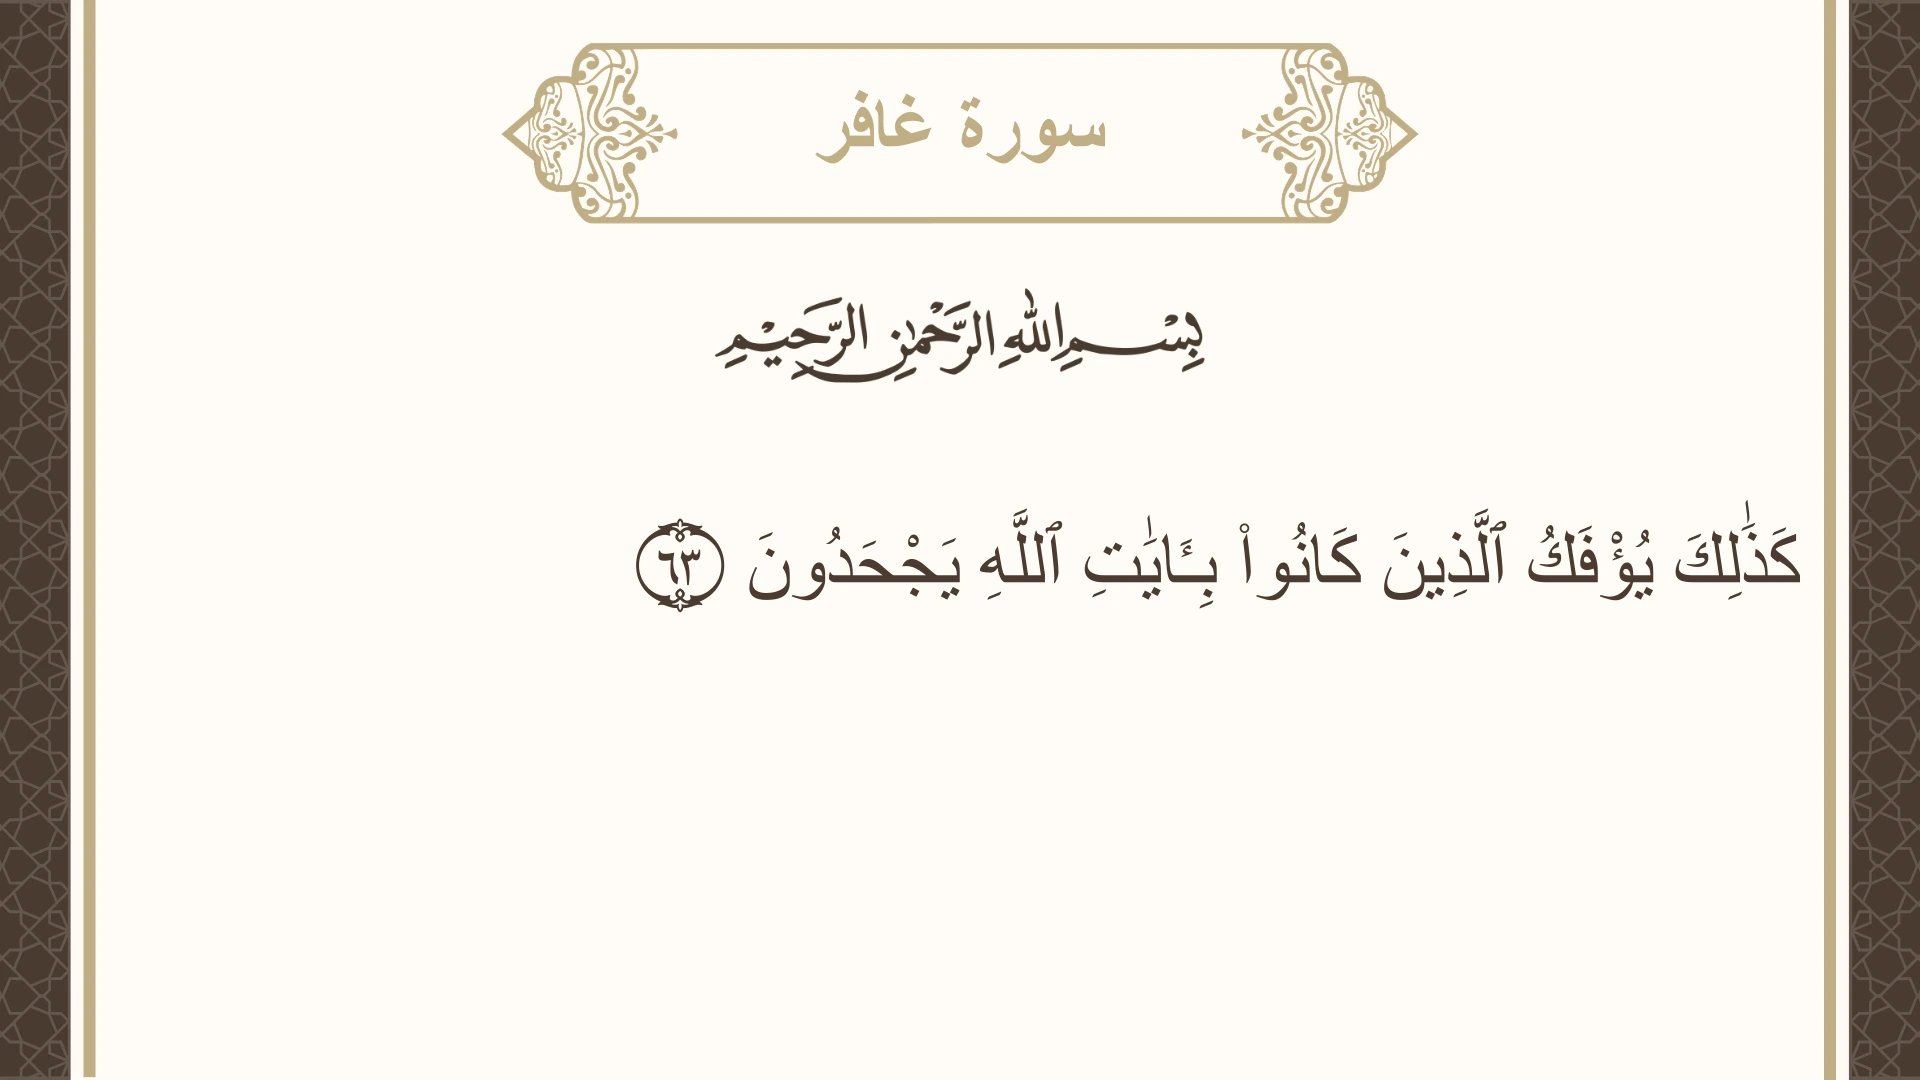 سورة غافر
بِسْمِ اللهِ الرَّحْمٰنِ الرَّحِيْمِ
كَذَٰلِكَ يُؤْفَكُ ٱلَّذِينَ كَانُوا۟ بِـَٔايَـٰتِ ٱللَّهِ يَجْحَدُونَ ٦٣